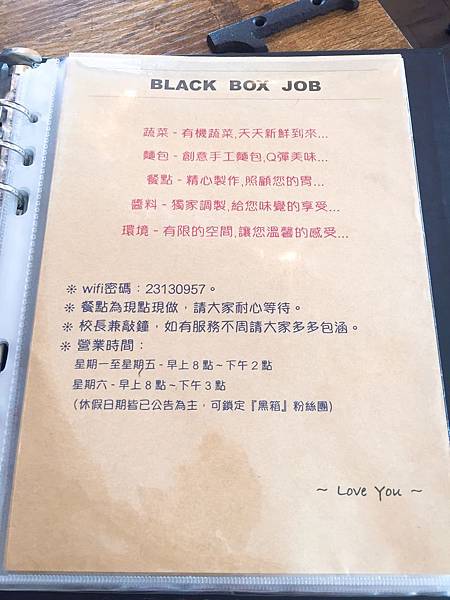 BLACK BOX JOB
蔬菜 - 有機蔬菜,天天新鮮到來...
麵包 - 創意手工麵包,Q彈美味...
餐點 - 精心製作,照顧您的胃...
醬料 - 獨家調製,給您味覺的享受...
環境 - 有限的空間,讓您溫馨的感受...
※ wifi密碼：23130957。
※ 餐點為現點現做，請大家耐心等待。
※ 校長兼敲鐘，如有服務不周請大家多多包涵。
※ 營業時間：
星期一至星期五 - 早上 8 點 ~ 下午 2 點
星期六 - 早上 8 點 ~ 下午 3 點
(休假日期皆已公告為主，可鎖定『黑箱』粉絲團)
~ Love You ~